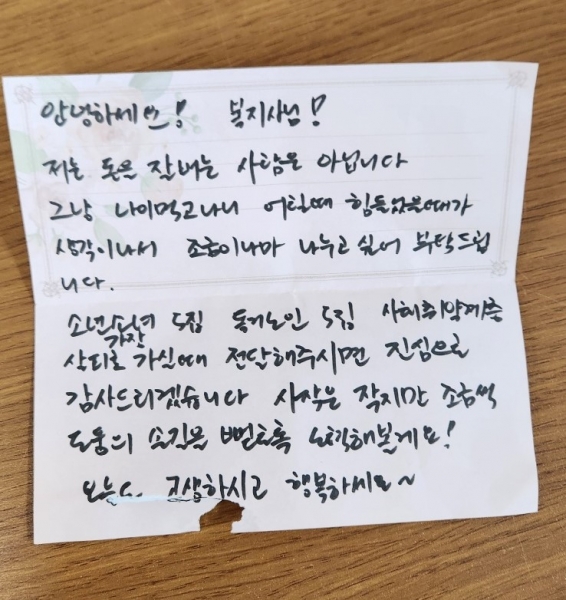 안녕하세요! 복지사님!
저는 돈은 잘버는 사람은 아닙니다
그냥 나이먹고나니 어릴때 힘들었을때가
생각이나서 조금이나마 나누고 싶어 부탁드립
니다.
소년소녀 5집 독거노인 5집 사회취약계층
가장
살피러 가실때 전달해주시면 진심으로
감사드리겠습니다 시작은 작지만 조금씩
도움의 손길을 뻗도록 노력해볼게요!
오늘도 고생하시고 행복하세요~